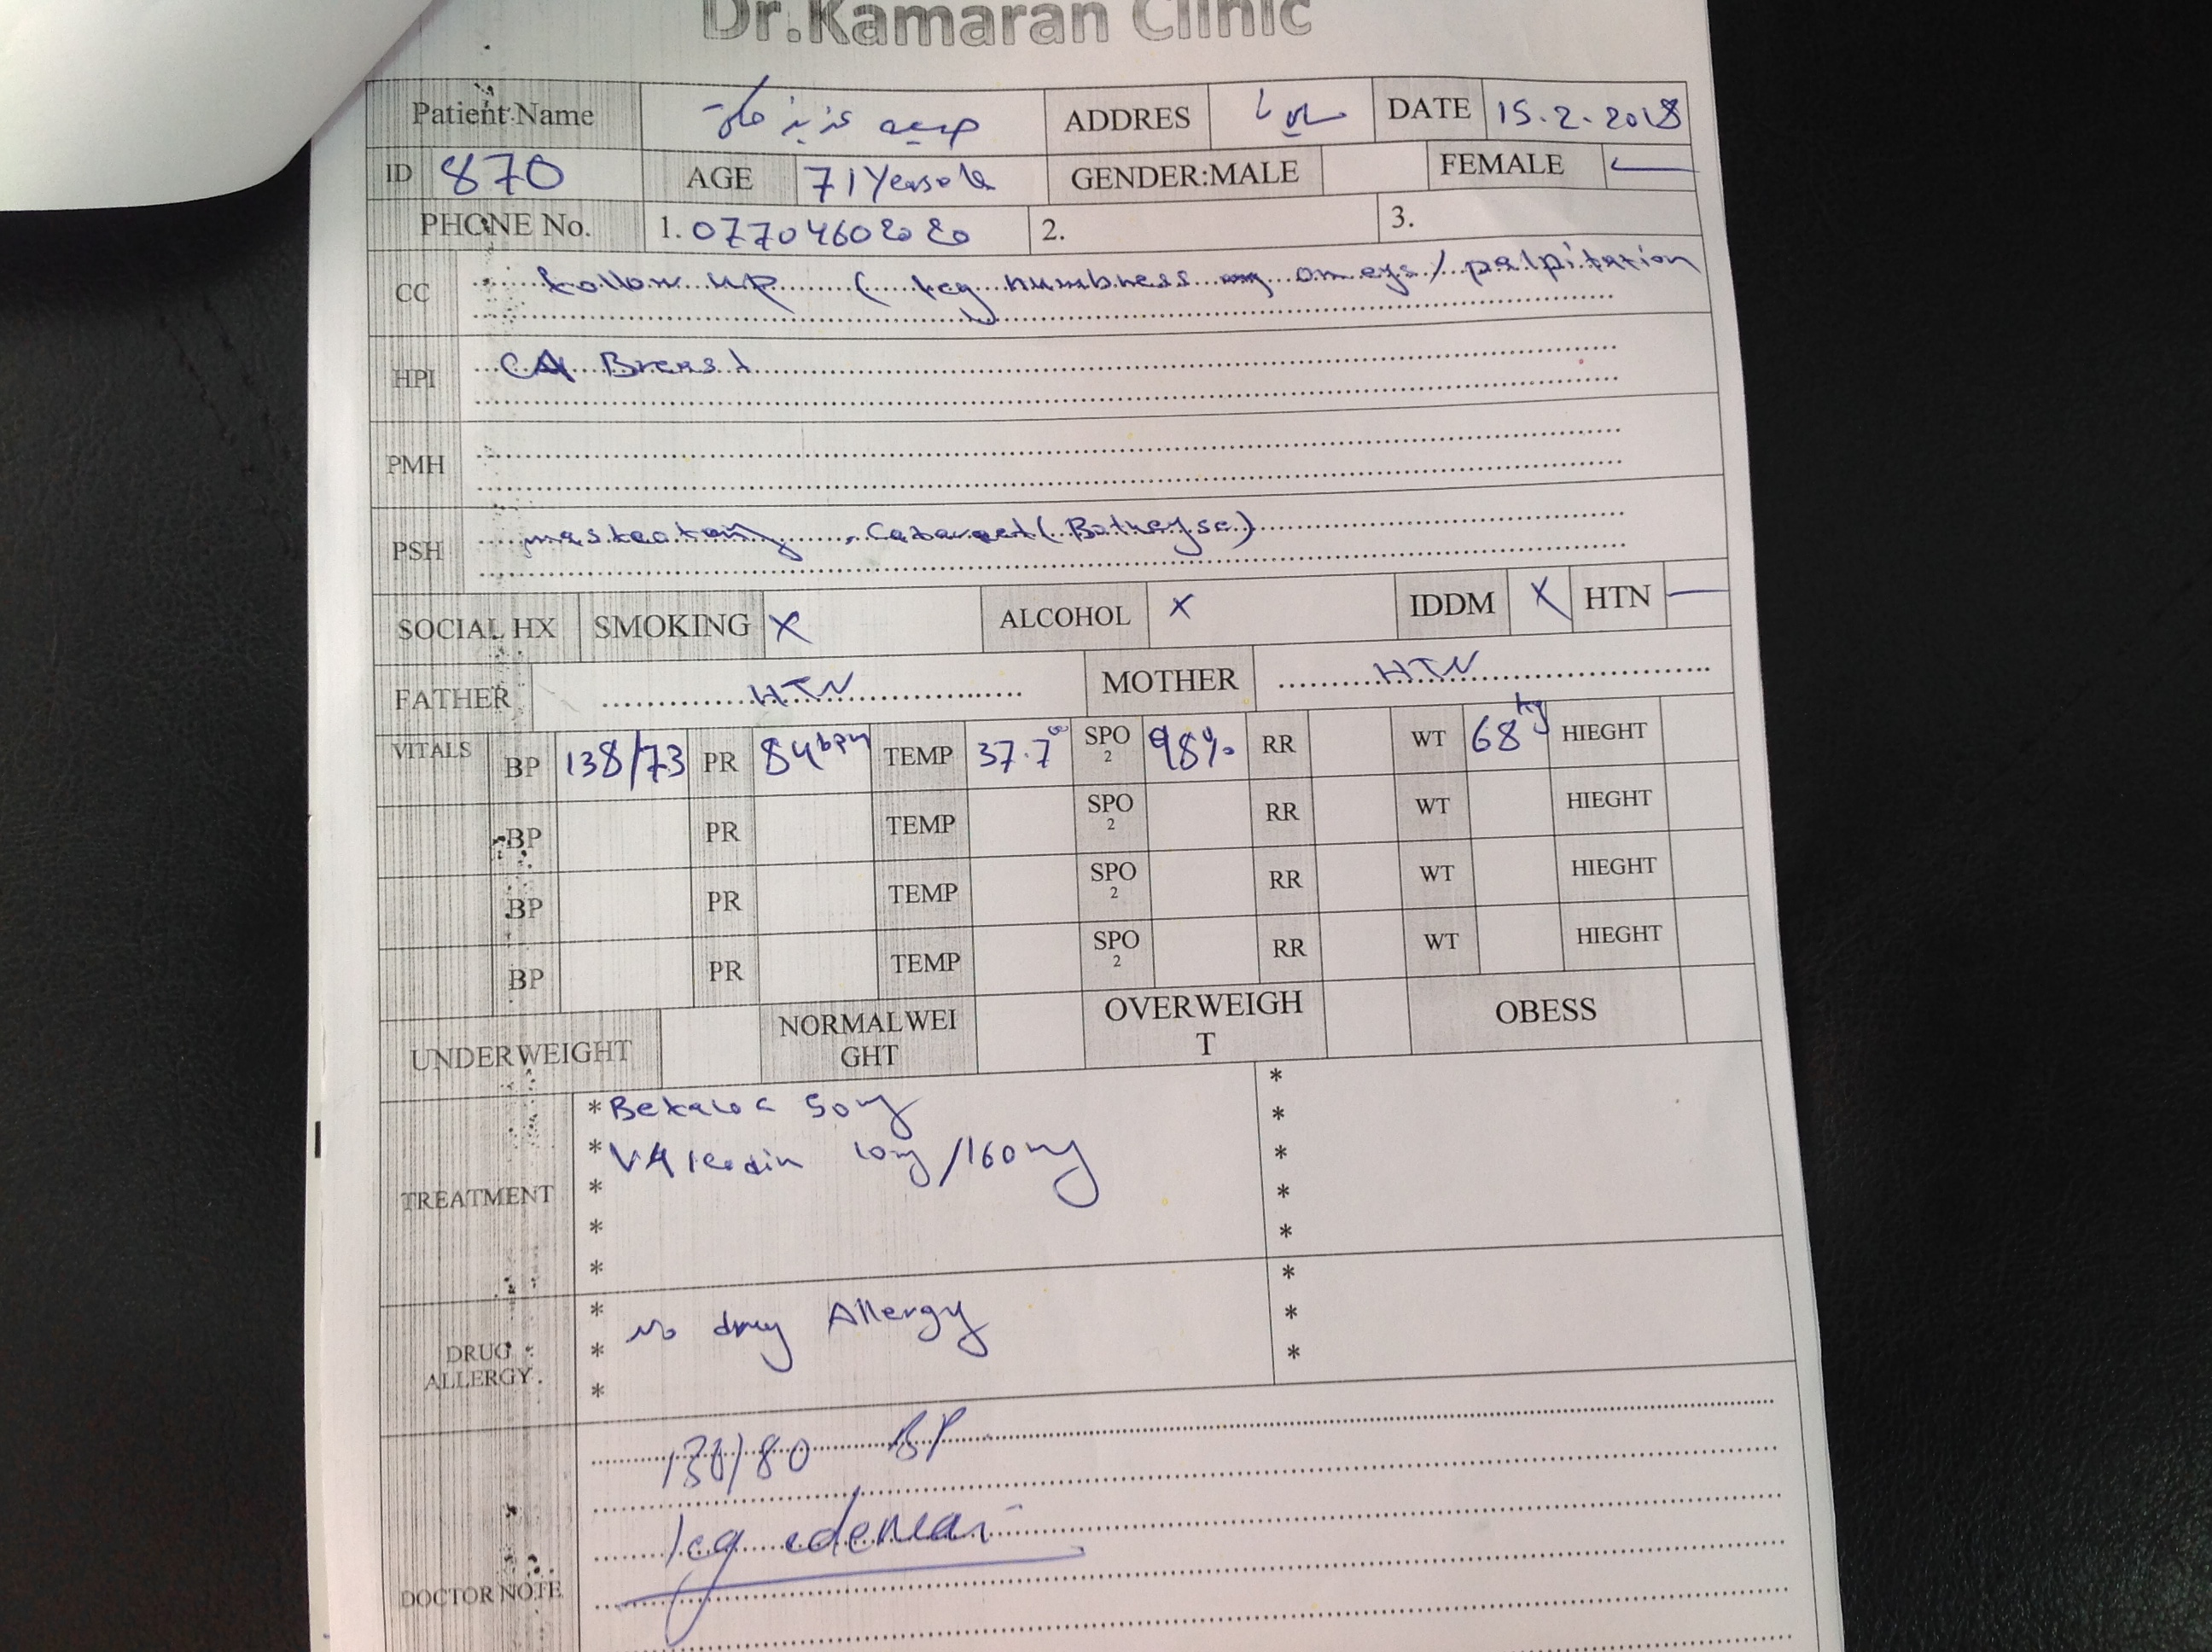 Dr.Kamaran Clinic
Patient Name عزيز ADDRES DATE 15.2.2018
ID 870 AGE 71 GENDER:MALE FEMALE
PHONE No. 1. 07704602020 2. 3.
CC Follow up ( leg numbness / palpitation
HPI CA Breast
PMH
PSH mastectomy
SOCIAL HX SMOKING X ALCOHOL X IDDM X HTN —
FATHER HTN MOTHER HTN
VITALS BP 138/73 PR 84bpm TEMP 37.7 SPO2 98% RR WT 68kg HIEGHT
BP PR TEMP SPO2 RR WT HIEGHT
BP PR TEMP SPO2 RR WT HIEGHT
BP PR TEMP SPO2 RR WT HIEGHT
UNDERWEIGHT NORMALWEIGHT OVERWEIGHT OBESS
TREATMENT
* Betaloc 50mg *
* 10mg/160mg *
* *
* *
* *
DRUG ALLERGY.
* No drug Allergy *
* *
* *
DOCTOR NOTE
130/80 BP
leg edema